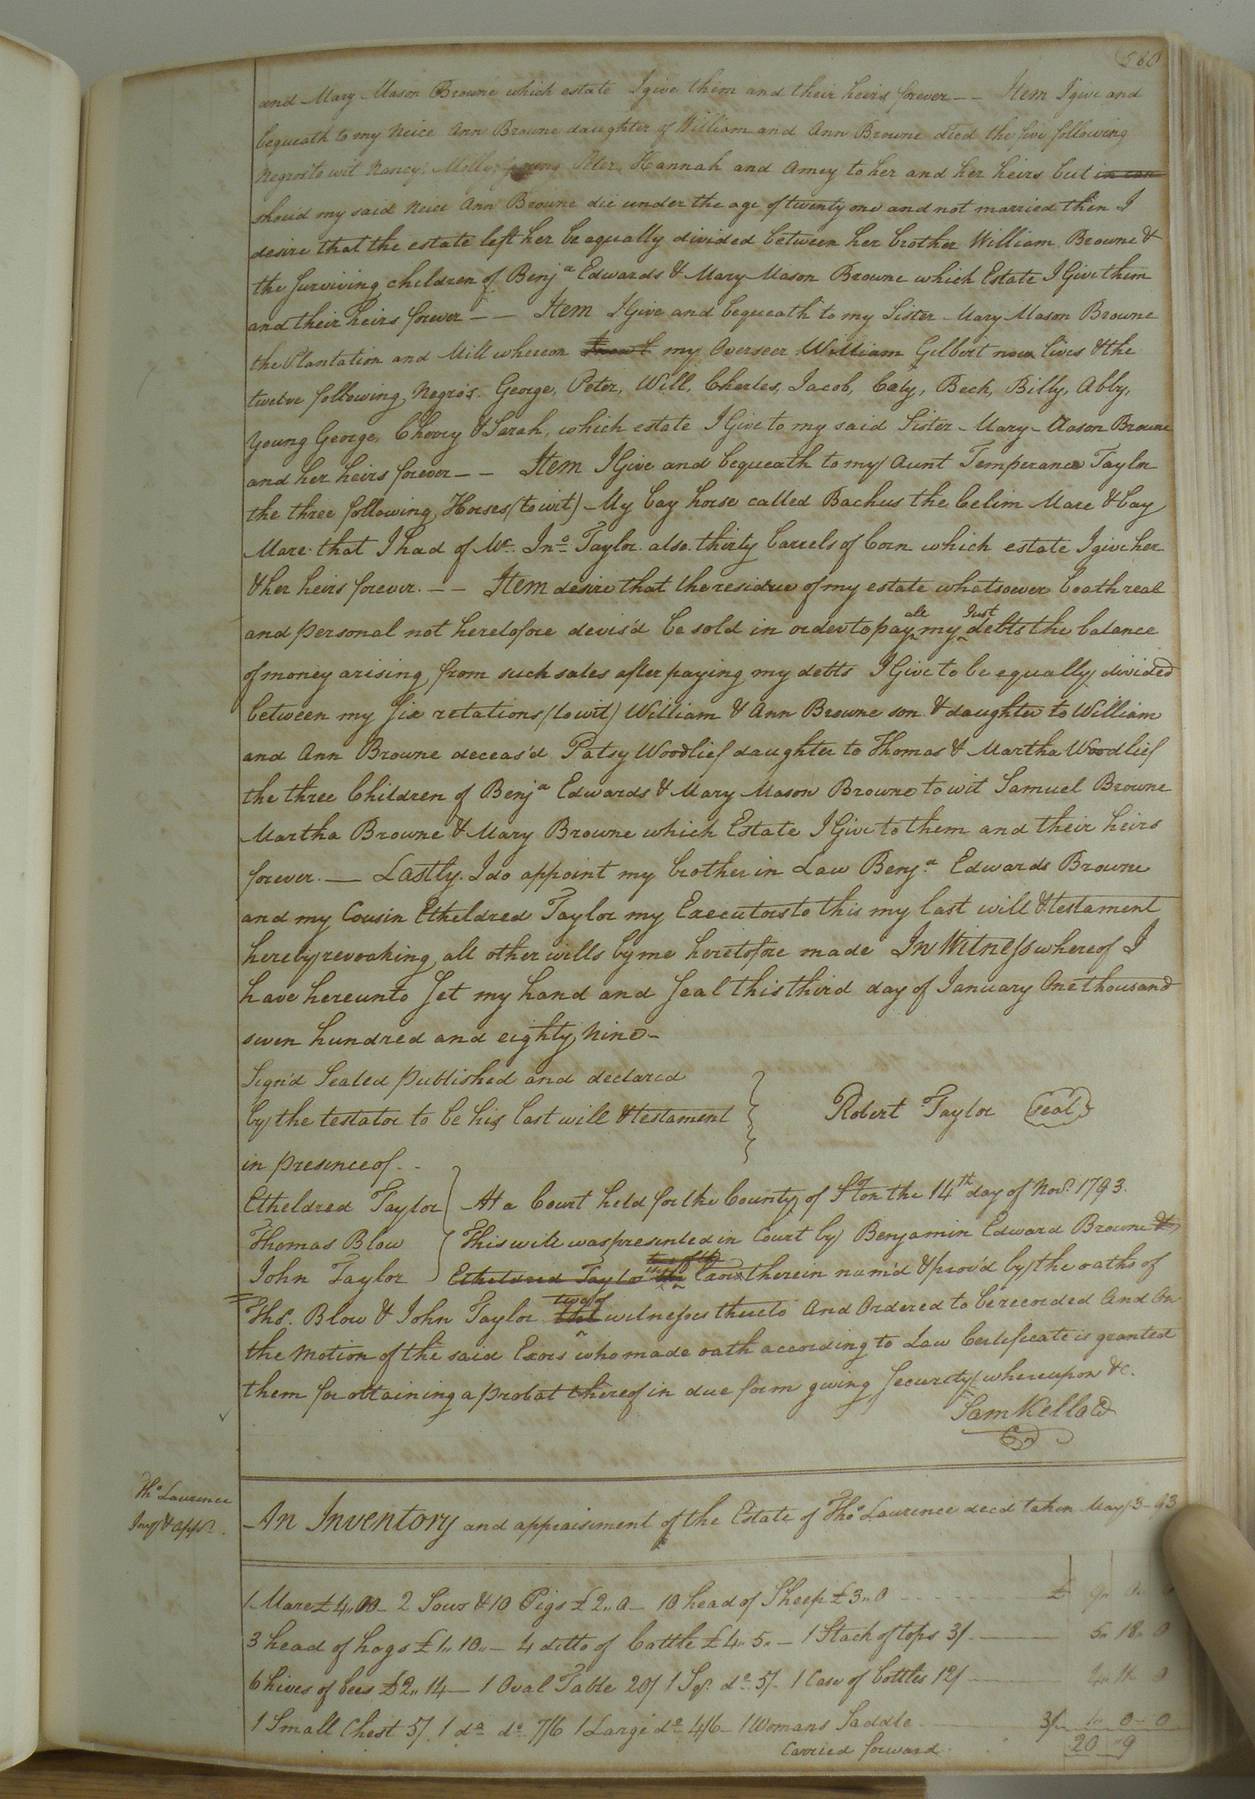 560
and Mary Mason Browne which estate I give them and their heirs forever -- Item I give and
bequeath to my Neice Ann Browne daughter of William and Ann Browne decd the five following
Negros to wit Nancy, Molly, young Peter, Hannah and Amey to her and her heirs but in can
should my said Neice Ann Browne die under the age of twenty one and not married then I
desire that the estate left her be equally divided between her brother William Browne &
the surviving children of Benja Edwards & Mary Mason Browne which Estate I Give them
and their heirs forever -- Item I Give and bequeath to my Sister Mary Mason Browne
the Plantation and Mill whereon my Overseer William Gilbert now lives & the
twelve following Negros. George, Peter, Will, Charles, Jacob, Caty, Beck, Billy, Abby,
Young George, Chovey & Sarah, which estate I Give to my said Sister Mary Mason Browne
and her heirs forever -- Item I Give and bequeath to my Aunt Temperance Taylor
the three following Horses (to wit) My bay horse called Bachus the Celim Mare & bay
Mare that I had of Mr. Jno. Taylor also thirty barrels of Corn which estate I give her
& her heirs forever. -- Item desire that the residue of my estate whatsoever boath real
and personal not heretofore devis'd be sold in order to pay all my Just debts the balance
of money arising from such sales after paying my debts I Give to be equally divided
between my six relations (to wit) William & Ann Browne son & daughter to William
and Ann Browne deceas'd Patsy Woodlief daughter to Thomas & Martha Woodlief
the three Children of Benja Edwards & Mary Mason Browne to wit Samuel Browne
Martha Browne & Mary Browne which Estate I Give to them and their heirs
forever. — Lastly. I do appoint my brother in Law Benja. Edwards Browne
and my Cousin Etheldred Taylor my Executors to this my last will & testament
hereby revoaking all other wills by me heretofore made In Witness whereof I
have hereunto set my hand and seal this third day of January One thousand
seven hundred and eighty Nine -
Sign'd Sealed published and declared
by the testator to be his last will & testament
Robert Taylor (seal)
in presence of -
Etheldred Taylor
Thomas Blow
John Taylor
At a Court held for the County of Soton the 14th day of Novr. 1793.
This will was presented in Court by Benjamin Edward Browne &
Etheldred Taylor the Exors therein nam'd & prov'd by the oaths of
Thos. Blow & John Taylor two of witnesses thereto And Ordered to be recorded And On
the Motion of the said Exors who made oath according to Law Certificate is granted
them for obtaining a probat thereof in due form giving Security whereupon &c.
Sam Kello CC
Tho Laurence
Invy & apps.
An Inventory and appraisiment of the Estate of Tho Laurence decd taken May 3 - 93
1 Mare £4,,00 - 2 Sows & 10 Pigs £2,,0 - 10 head of Sheep £3,,0 £ 9,, 0,, 0
3 head of hogs £1,,10,, - 4 ditto of Cattle £4,,5,, - 1 Stack of tops 3/. 5,, 18,, 0
6 hives of bees £2,,14 - 1 Oval Table 20/ 1 Sqr. do. 5/. 1 Case of bottles 12/ 4,, 11,, 0
1 Small Chest 5/. 1 do do 7/6 1 Large do 4/6 - 1 Womans Saddle 3/. 1,, 0 - 0
Carried forward 20 " 9